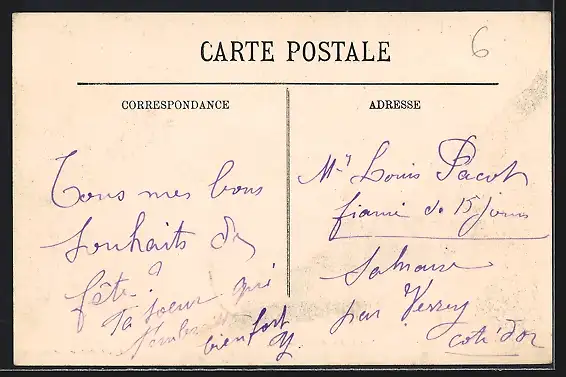 CARTE POSTALE
6
CORRESPONDANCE
Tous mes bons
souhaits de
fête
Ta soeur qui
t'embrasse
bien fort
ADRESSE
Mr Louis Pacot
fiancé de 15 jours
Salmaise
par Verrey
Cote d'or